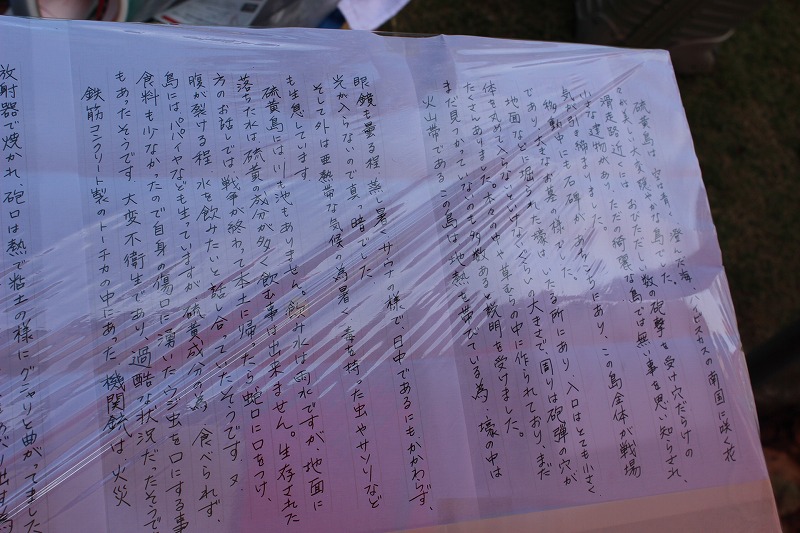 硫黄島は、空は青く澄んだ海、ハイビスカスの南国に咲く花
々が美しい大変穏やかな島でした。
滑走路近くには、おびただしい数の砲撃を受け穴だらけの
小さな建物があり、ただの綺麗な島では無い事を思い知らされ、
気が引き締まりました。
移動中にも石碑があちこちにあり、この島全体が戦場
であり大きなお墓の様でした。
地面などに掘られた壕は、いたる所にあり、入口はとても小さく
体を丸めて入らないといけないぐらいの大きさで、周りは砲弾の穴が
たくさんありました。木々の中や草むらの中に作られており、まだ
まだ見つかっていないのも多数あると説明を受けました。
火山帯であるこの島は地熱を帯びている為、壕の中は
眼鏡も曇る程蒸し暑くサウナの様で、日中であるにもかかわらず、
光が入らないので真っ暗でした。
そして外は亜熱帯な気候の為暑く、毒を持った虫やサソリなど
も生息しています。
硫黄島には川も池もありません。飲み水は雨水ですが、地面に
落ちた水は硫黄の成分が多く飲む事は出来ません。生存された
方のお話しでは戦争が終わって本土に帰ったら蛇口に口をつけ、
腹が裂ける程水を飲みたいと話し合っていたそうです。又
島にはパパイヤなども生っていますが硫黄成分の為、食べられず、
食料も少なかったので自身の傷口に湧いたウジ虫を口にする事
もあったそうです。大変不衛生であり、過酷な状況だったそうで
鉄筋コンクリート製のトーチカの中にあった機関銃は、火炎
放射器で焼かれ、砲口は熱で粘土の様にグニャリと曲がってました